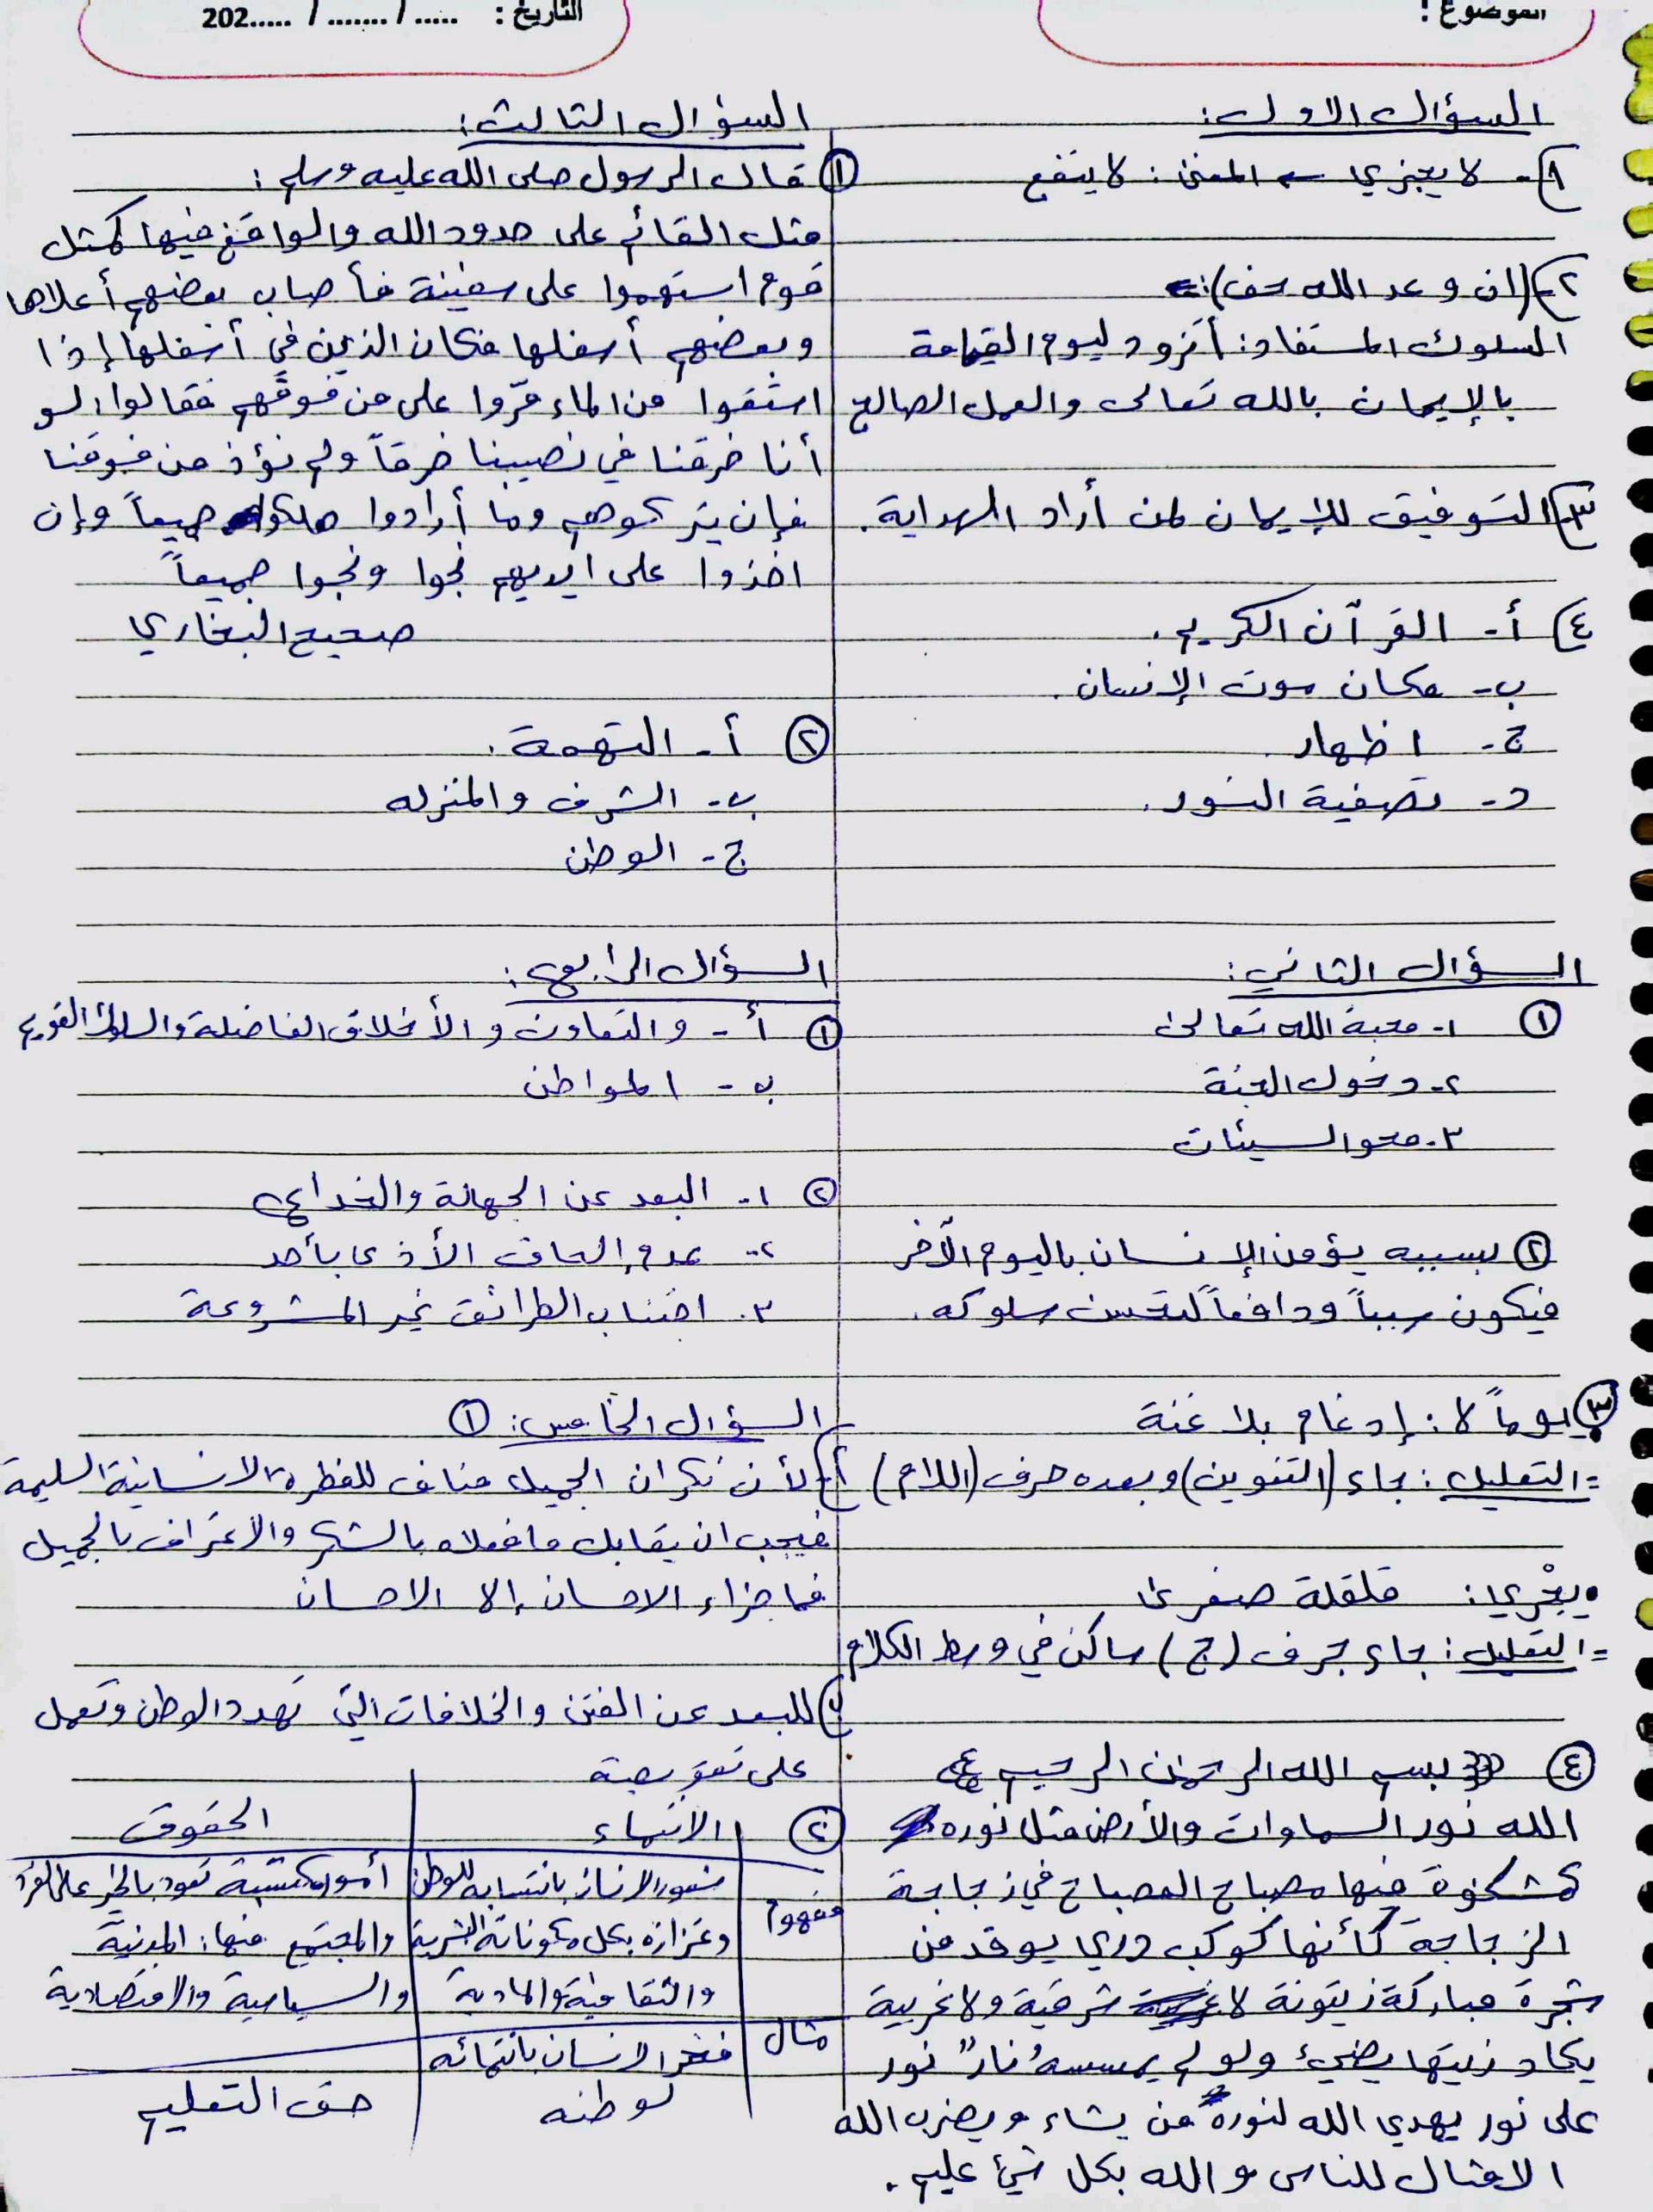 الموضوع :
التاريخ : ..... / ....... / .....202
السؤال الاول:
١- لا يجزي ← المعنى : لا ينفع
٢- (ان وعد الله حق):
السلوك المستفاد: أتزود ليوم القيامة
بالإيمان بالله تعالى والعمل الصالح
٣- التوفيق للإيمان لمن أراد الهداية.
٤) أ- القرآن الكريم.
ب- مكان موت الإنسان.
ج- اظهار.
د- تصفية النور.
السؤال الثاني:
① ١- محبة الله تعالى
٢- دخول الجنة
٣- محو السيئات
② بسببه يؤمن الإنسان باليوم الآخر
فيكون سبباً ودافعاً لتحسن سلوكه.
③ يوماً لا : إدغام بلا غنة
= التعليل : جاء (التنوين) وبعده حرف (اللام)
• يجْزي: قلقلة صغرى
= التعليل : جاء حرف (ج) ساكن في وسط الكلام
④ بسم الله الرحمن الرحيم
الله نور السماوات والأرض مثل نوره
كمشكوة فيها مصباح المصباح في زجاجة
الزجاجة كأنها كوكب دري يوقد من
شجرة مباركة زيتونة لا شرقية ولا غربية
يكاد زيتها يضيء ولو لم يمسسه نار" نور
على نور يهدي الله لنوره من يشاء ويضرب الله
الامثال للناس والله بكل شيء عليم.
السؤال الثالث:
① قال الرسول صلى الله عليه وسلم :
مثل القائم على حدود الله والواقع فيها كمثل
قوم استهموا على سفينة فأصاب بعضهم أعلاها
وبعضهم أسفلها فكان الذين في أسفلها إذا
استقوا من الماء مرّوا على من فوقهم فقالوا لو
أنا خرقنا في نصيبنا خرقاً ولم نؤذ من فوقنا
فإن يتركوهم وما أرادوا هلكوا جميعاً وإن
اخذوا على ايديهم نجوا ونجوا جميعاً
صحيح البخاري
② أ- التهمة.
ب- الشرف والمنزله
ج- الوطن
السؤال الرابع:
① أ- والتعاون والأخلاق الفاضلة والسلوك القويم
ب- المواطن
② ١- البعد عن الجهالة والخداع
٢- عدم إلحاق الأذى بأحد
٣- اجتناب الطرائق غير المشروعة
السؤال الخامس: ①
أ) لأن نكران الجميل مناف للفطرة الانسانية السليمة
فيجب ان يقابل ما فعلاه بالشكر والاعتراف بالجميل
فما جزاء الاحسان إلا الاحسان
ب) للبعد عن الفتن والخلافات التي تهدد الوطن وتعمل
على تقويضه
② الانتماء الحقوق
مفهوم شعور الانسان بانتسابه للوطن أمور مكتسبة تعود بالخير على الفرد
وعتزازه بكل مكوناته البشرية والمجتمع منها: المدنية
والثقافية والمادية والسياسية والاقتصادية
مثال فخر الانسان بانتمائه
لوطنه حق التعليم